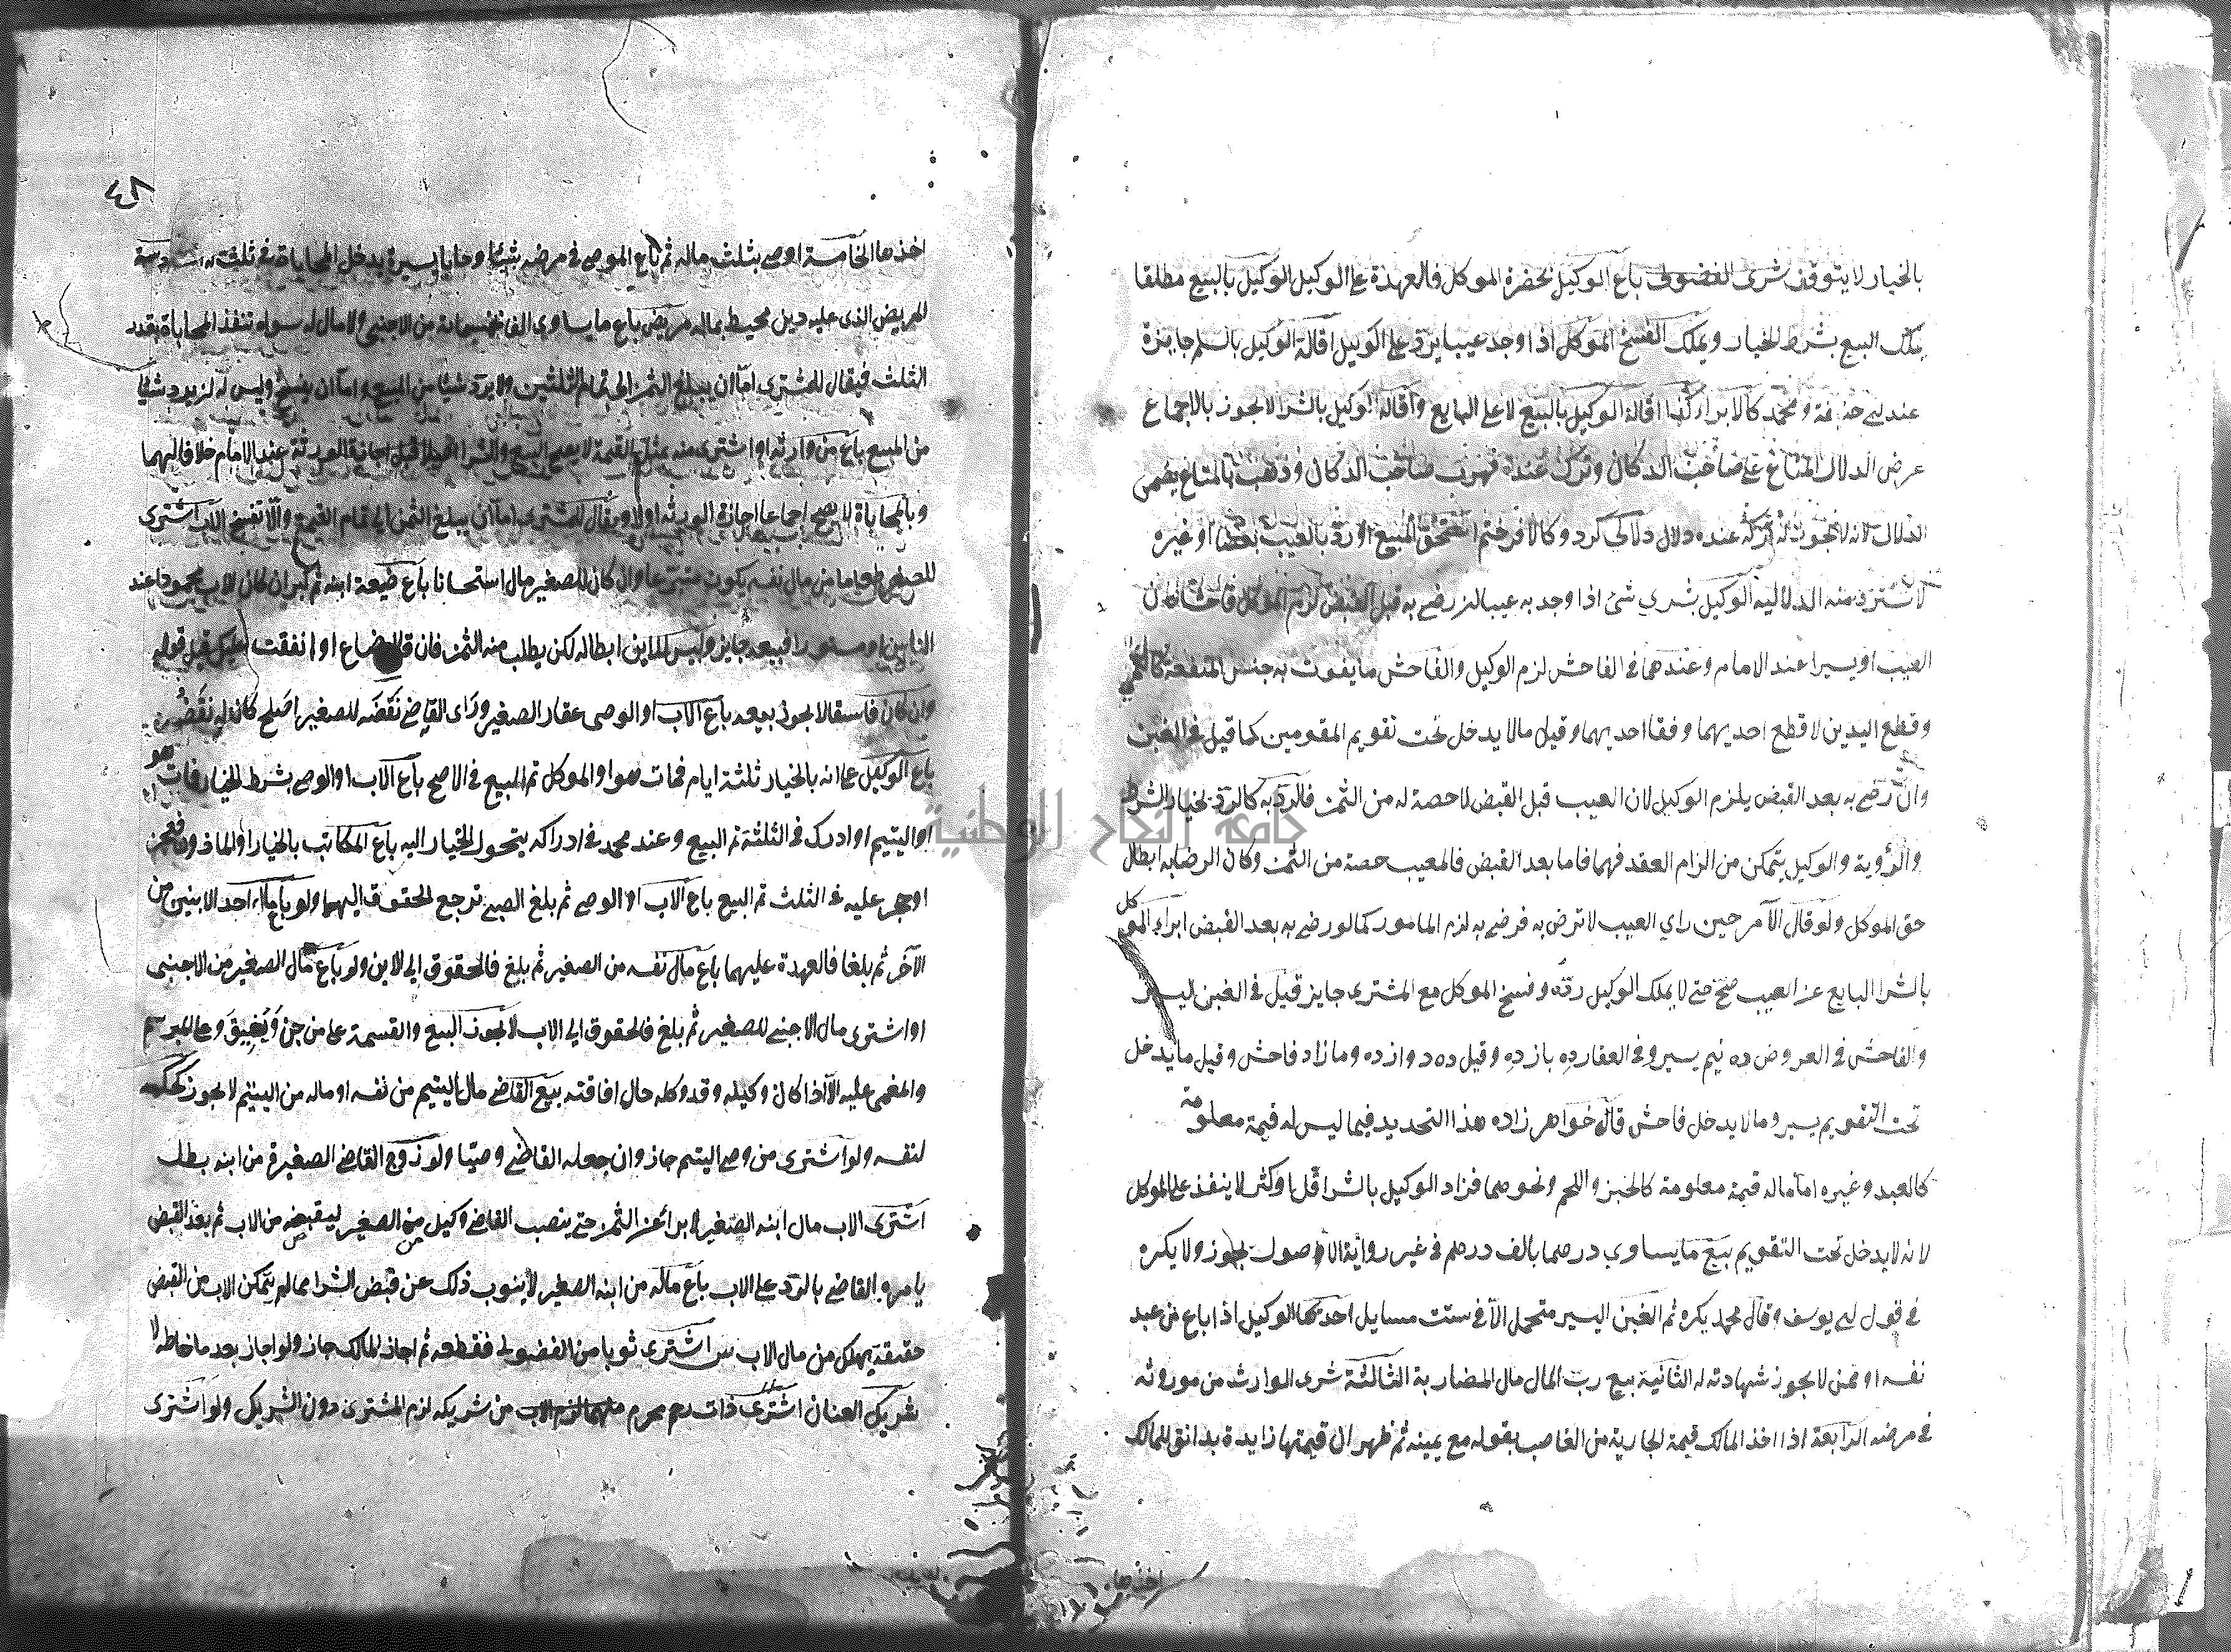 بالخيار لا يتوقف شرى الفضولى باع الوكيل بحضرة الموكل فالعهدة على الوكيل الوكيل بالبيع مطلقا
يملك البيع بشرط الخيار ويملك الفسخ الموكل اذا وجد عيبا يرد على الوكيل اقالة الوكيل بالسلم جايزة
عند ابى حنيفة ومحمد كالابراء كذا اقالة الوكيل بالبيع لا على البايع واقالة الوكيل بالشرا لا يجوز بالاجماع
عرض الدلال المتاع على صاحب الدكان وترك عنده فهرب صاحب الدكان وذهب بالمتاع يضمن
الدلال لانه لا يجوز له تركه عنده دلال دلالى كرد وكالا فرختم استحق المبيع او رد بالعيب بقضا او غيره
لا تسترد منه الدلالية الوكيل بشرى شئ اذا وجد به عيبا لو رضى به قبل القبض لزم الموكل فاحشا كان
العيب او يسيرا عند الامام وعندهما فى الفاحش لزم الوكيل والفاحش ما يفوت به جنس المنفعة كالعمى
وقطع اليدين لا قطع احديهما وفقا احديهما وقيل ما لا يدخل تحت تقويم المقومين كما قيل فى الغبن
وان رضى به بعد القبض يلزم الوكيل لان العيب قبل القبض لا حصة له من الثمن فالرد به كالرد بخيار الشرط
والرؤية والوكيل يتمكن من الزام العقد فيهما فاما بعد القبض فالمعيب حصة من الثمن وكان الرضا به ابطال
حق الموكل ولو قال الآمر حين راي العيب لا ترض به فرضى به لزم المامور كما لو رضى به بعد القبض ابراء الموكل
بالشرا البايع عن العيب صح حتى لا يملك الوكيل رده وفسخ الموكل مع المشترى جايز قيل فى الغبن ليسير
والفاحش فى العروض ده نيم يسير وفى العقار ده يازده وقيل ده دوازده وما زاد فاحش وقيل ما يدخل
تحت التقويم يسير وما لا يدخل فاحش قال خواهر زاده هذا التحديد فيما ليس له قيمة معلومة
كالعبد وغيره اما ما له قيمة معلومة كالخبز واللحم ونحوهما فزاد الوكيل بالشرا قل او كثر لا ينفذ على الموكل
لانه لا يدخل تحت التقويم بيع ما يساوي درهما بالف درهم فى غير رواية الاصول يجوز ولا يكره
فى قول ابى يوسف وقال محمد يكره ثم الغبن اليسير متحمل الا فى ست مسايل احدها الوكيل اذا باع من عبد
نفسه او ممن لا يجوز شهادته له الثانية بيع رب المال مال المضاربة الثالثة شرى الوارث من مورثه
فى مرضه الرابعة اذا اخذ المالك قيمة الجارية من الغاصب بقوله مع يمينه ثم ظهر ان قيمتها زايدة بدانق للمالك
اخذها
٤٨
اخذها الخامسة اوصى بثلث ماله ثم باع الموصى فى مرضه شيئا وحابا يسيرة يدخل المحاباة فى ثلثه السادسة
المريض الذى عليه دين محيط بماله مريض باع ما يساوى الفا بخمسمائة من الاجنبى ولا مال له سواه تنفذ المحاباة بقدر
الثلث فيقال للمشترى اما ان يبلغ الثمن الى تمام الثلثين ولا يرد شيئا من المبيع واما ان يفسخ وليس له ان يرد شيئا
من المبيع باع من وارثه او اشترى منه بمثل القيمة لا يصح البيع والشرا اصلا قبل اجازة الورثة عند الامام خلافا لهما
وبالمحاباة لا يصح اجماعا اجازة الورثة اولا ويقال للمشترى اما ان يبلغ الثمن الى تمام القيمة والا تفسخ الاب اشترى
للصغير طعاما من مال نفسه يكون متبرعا وان كان للصغير مال استحسانا باع ضيعة ابنه ثم كبر ان كان الاب محمودا عند
الناس او مستورا فبيعه جايز وليس للابن ابطاله لكن يطلب منه الثمن فان قال ضاع او انفقت عليك قبل قوله
وان كان فاسقا لا يجوز بيعه باع الاب او الوصى عقار الصغير وراى القاضى نقضه للصغير اصلح كان له نقضه
باع الوكيل على انه بالخيار ثلثة ايام فمات هو او الموكل تم المبيع فى الاصح باع الاب او الوصى بشرط الخيار فمات هو
او اليتيم او ادرك فى الثلثة تم البيع وعند محمد فى ادراكه يتحول الخيار اليه باع المكاتب بالخيار او الماذون فعجز
او حجر عليه فى الثلث تم البيع باع الاب او الوصى ثم بلغ الصبى ترجع الحقوق اليهما ولو باع مال احد الابنين من
الآخر ثم بلغا فالعهدة عليهما باع مال نفسه من الصغير ثم بلغ فالحقوق الى الابن ولو باع مال الصغير من الاجنبى
او اشترى مال الاجنبى للصغير ثم بلغ فالحقوق الى الاب لا يجوز البيع والقسمة على من جن ويفيق وعلى المبرسم
والمغمى عليه الا اذا كان وكيله وقد وكله حال افاقته بيع القاضى مال اليتيم من نفسه او ماله من اليتيم لا يجوز
لنفسه ولو اشترى من وصى اليتيم جاز وان جعله القاضى وصيا ولو زوج القاضى الصغيرة من ابنه بطل
اشترى الاب مال ابنه الصغير لا يبرا عن الثمن حتى ينصب القاضى وكيل من الصغير ليقبضه من الاب ثم بعد القبض
يامره القاضى بالرد على الاب باع ماله من ابنه الصغير لا ينوب ذلك عن قبض الشرا ما لم يتمكن الاب من القبض
حقيقة يهلك من مال الاب اشترى ثوبا من الفضولى فقطعه ثم اجاز المالك جاز ولو اجاز بعد ما خاطه لا
شريك العنان اشترى ذات رحم محرم من شريكه لزم المشترى دون الشريك ولو اشترى
جامعة النجاح الوطنية